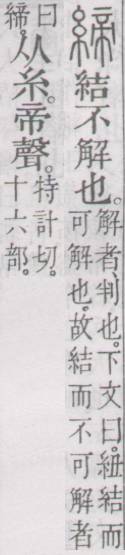 締結不解也。解者、判也。下文曰。紐結而
可解也。故結而不可解者
曰
締。从糸。帝聲。特計切。
十六部。